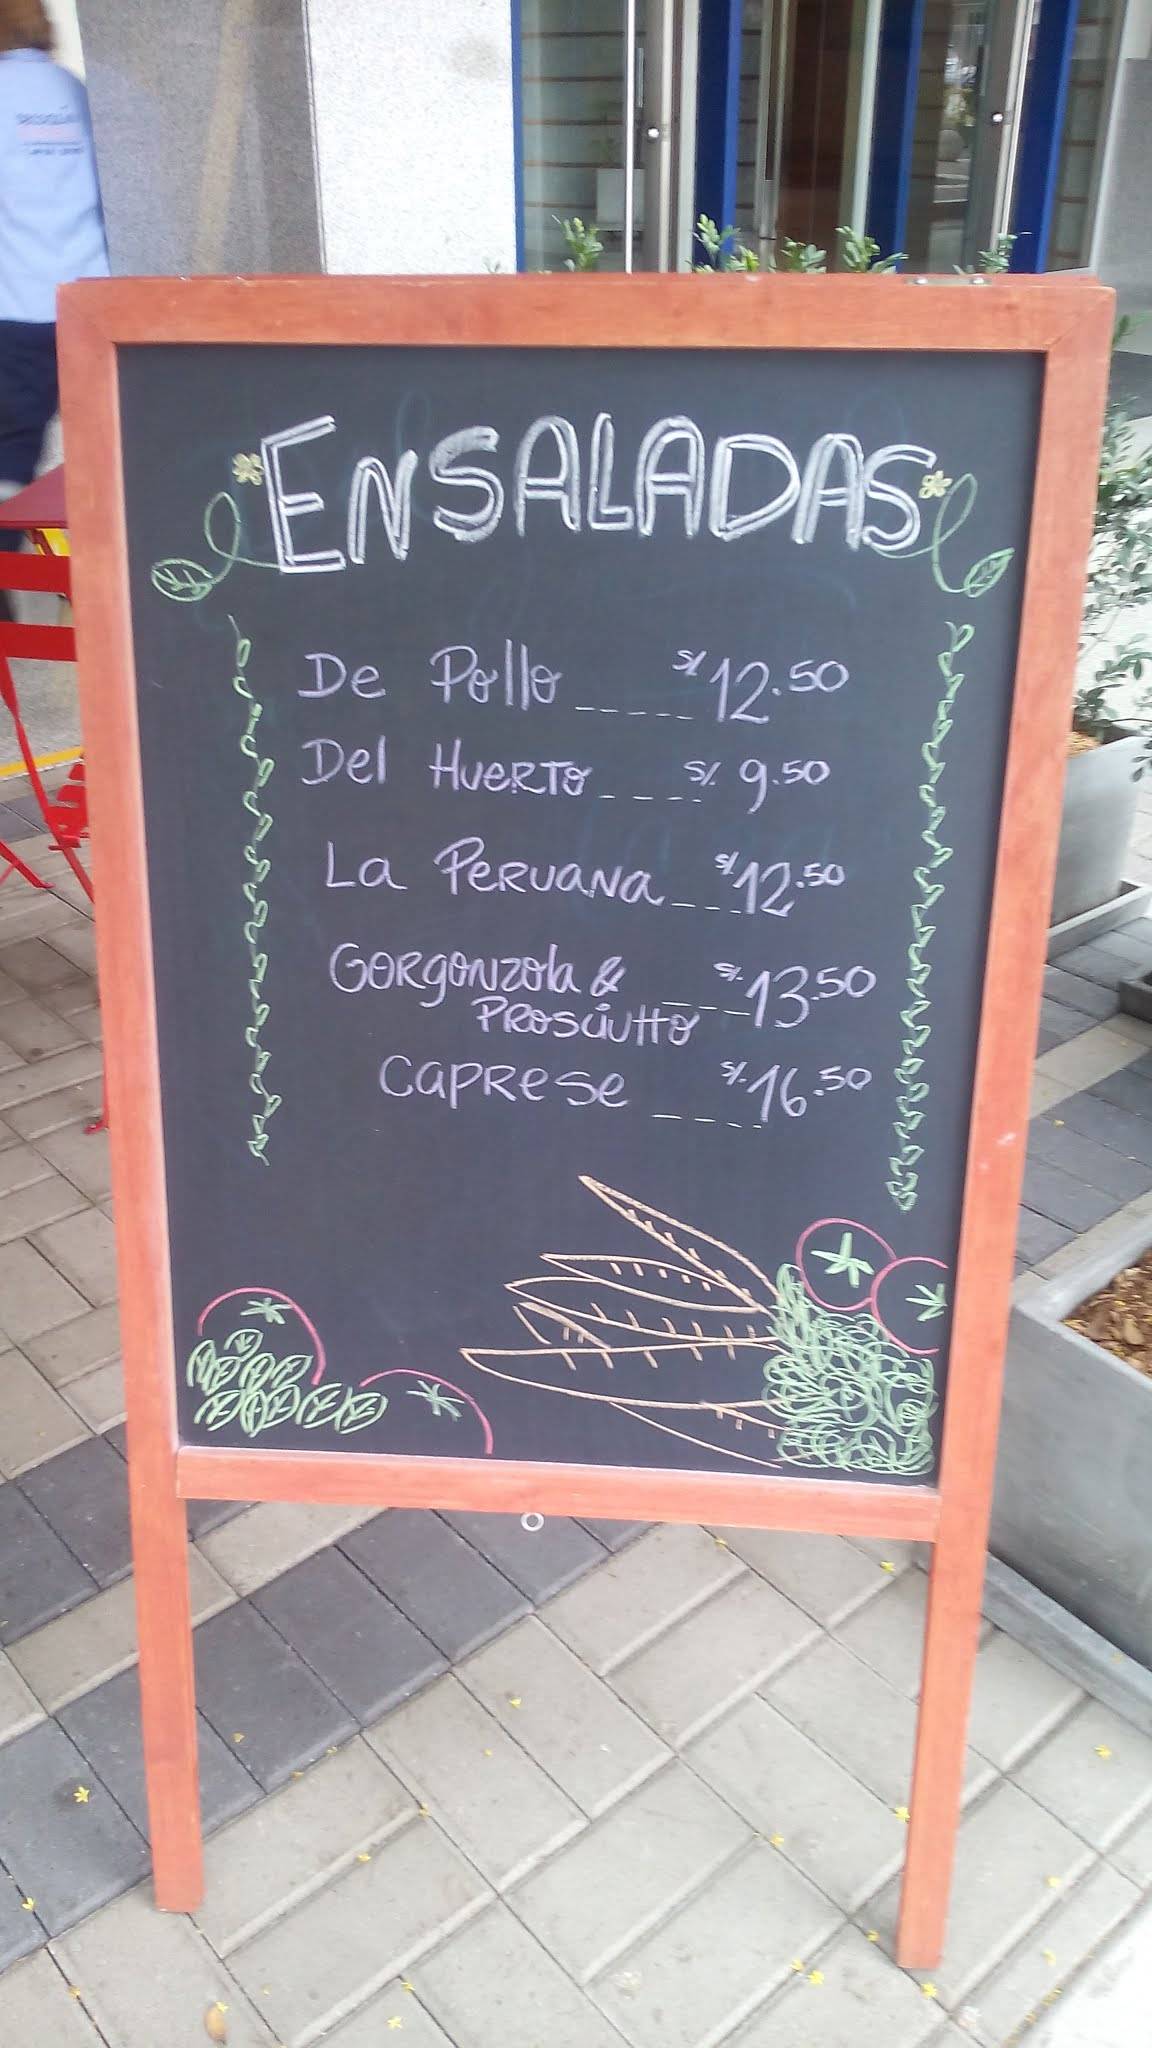 ENSALADAS
De Pollo _ _ _ _ _ S/. 12.50
Del HUERTO _ _ _ _ S/. 9.50
La PERUANA _ _ _ S/. 12.50
GORGONZOLA & _ _ _ S/. 13.50
PROSCIUTTO
CAPRESE _ _ _ _ S/. 16.50